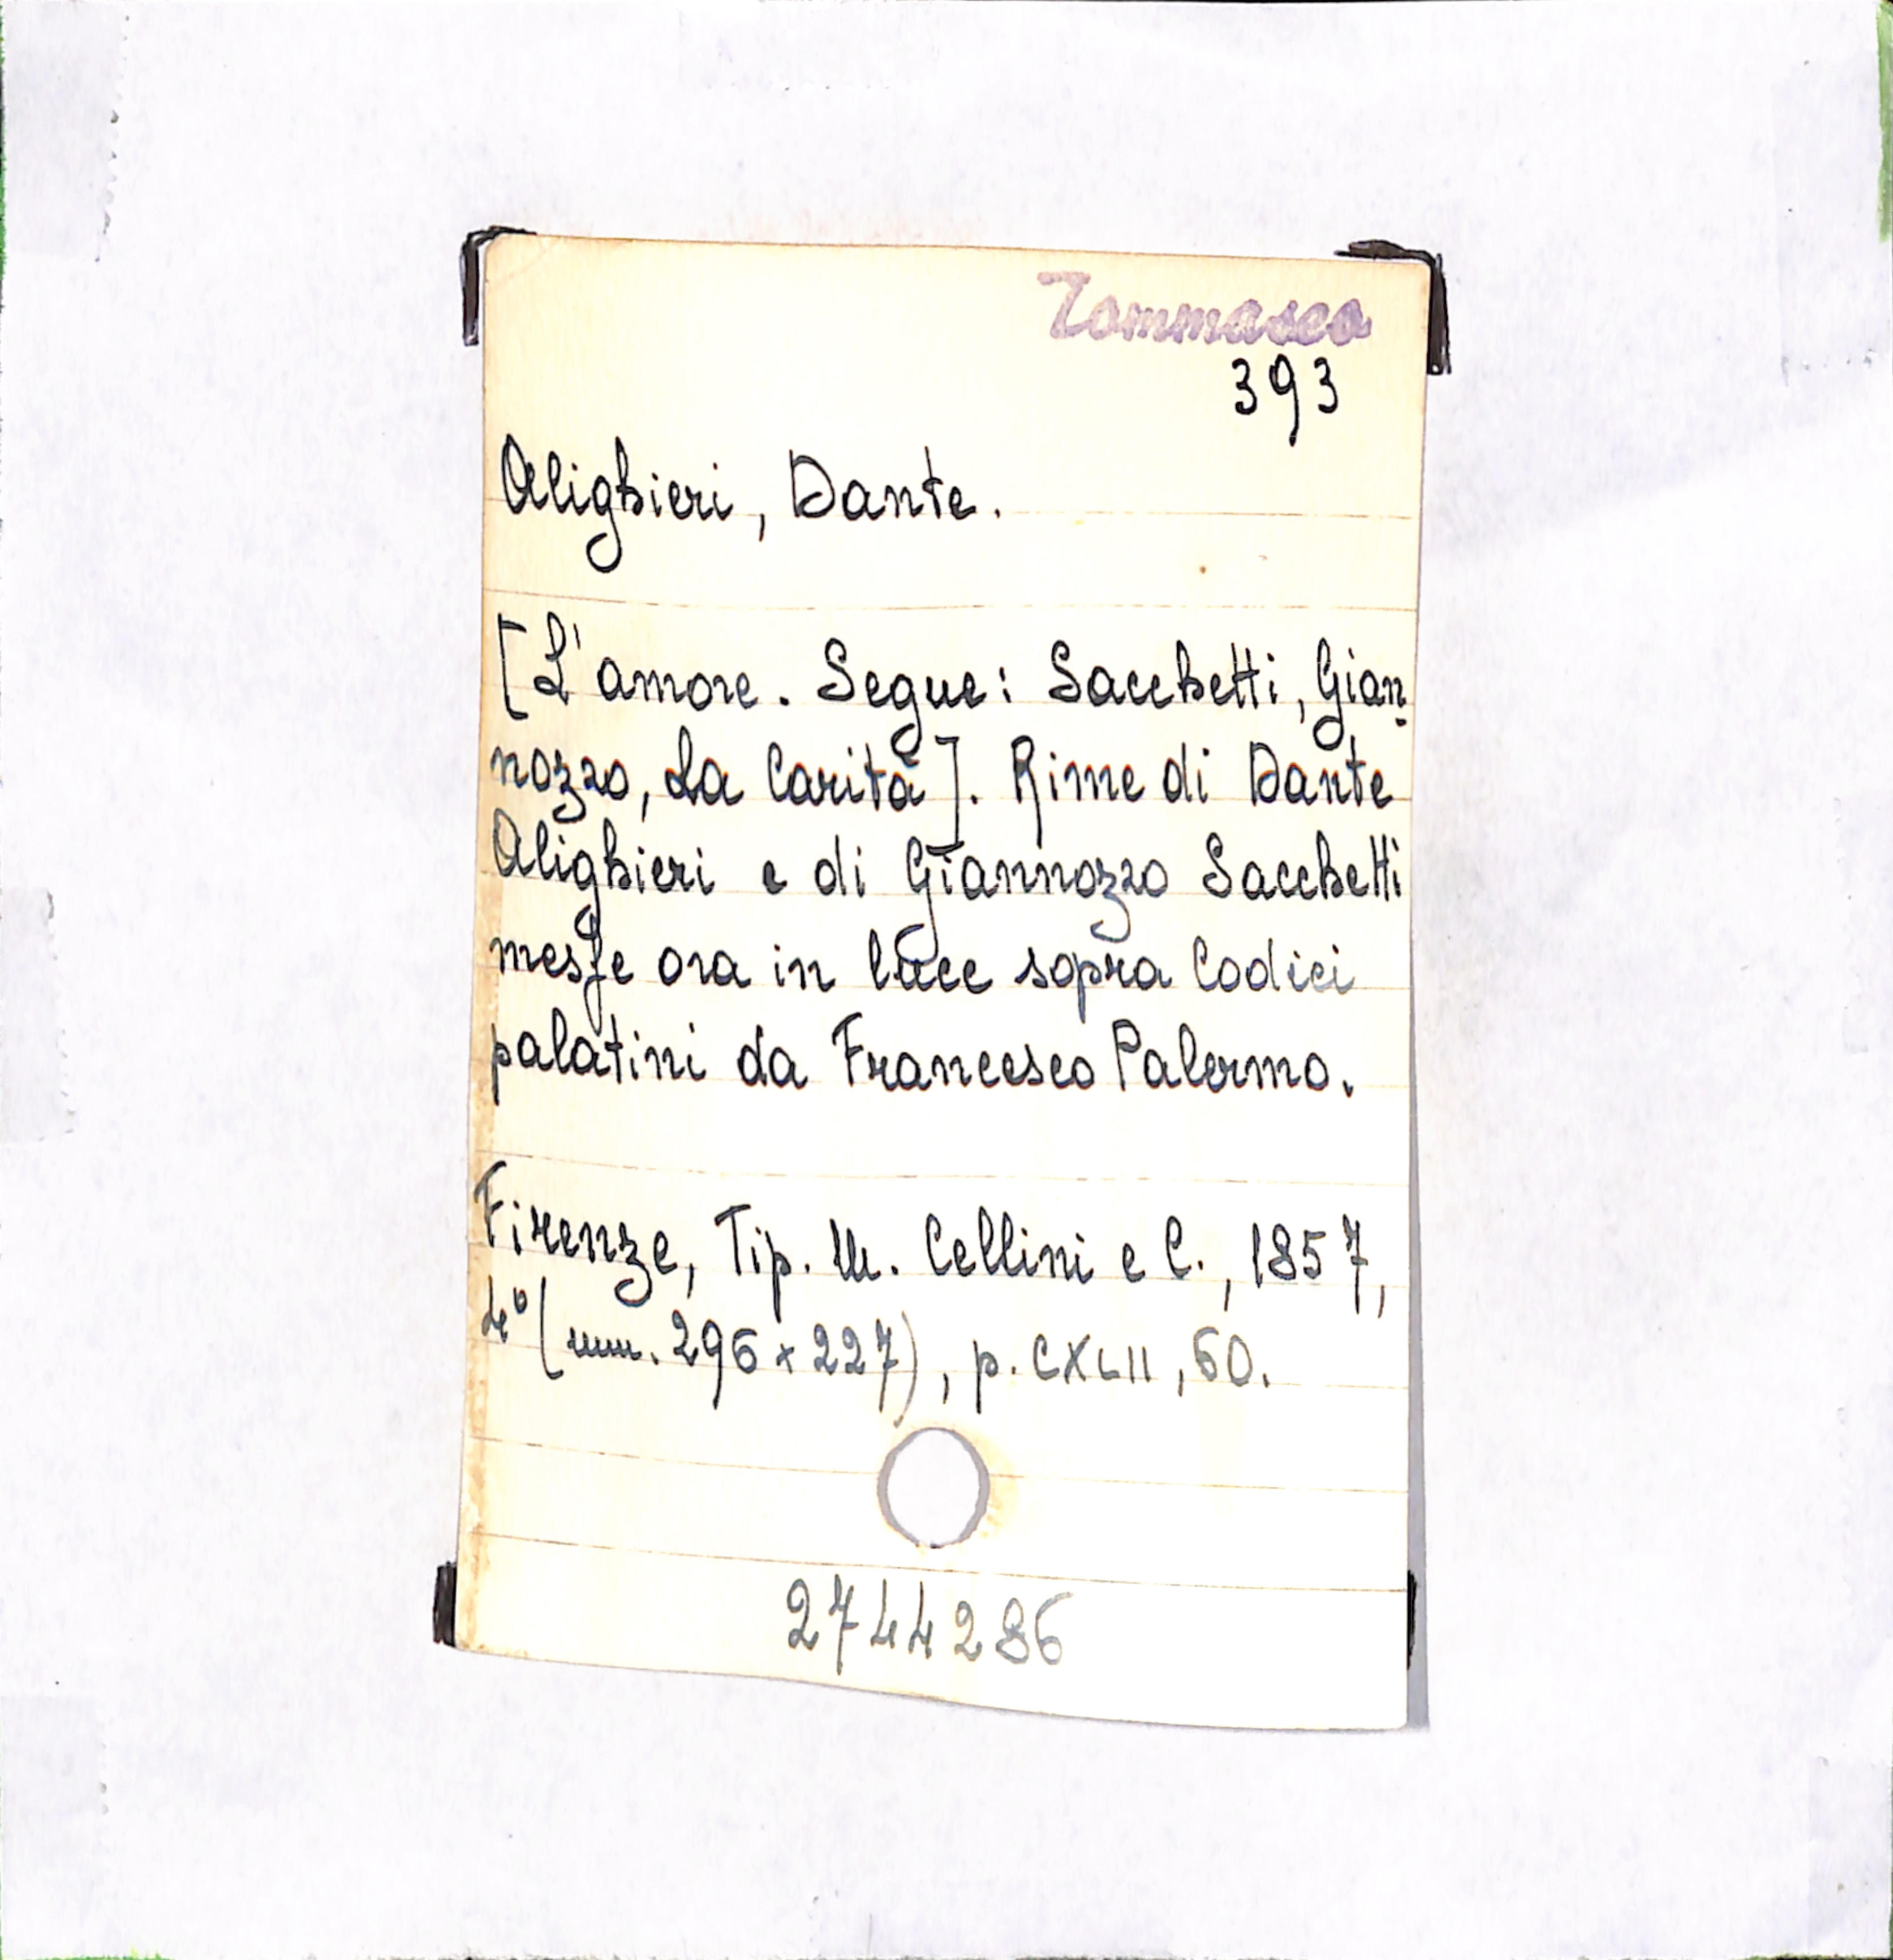 Tommaseo
393
Alighieri, Dante.
[L'amore. Segue: Sacchetti, Gian
nozzo, La Carità]. Rime di Dante
Alighieri e di Giannozzo Sacchetti
messe ora in luce sopra Codici
palatini da Francesco Palermo.
Firenze, Tip. M. Cellini e C., 1857,
4° (mm. 296 x 227), p. CXLII, 60.
2744286